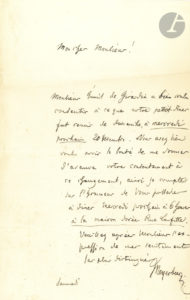 Monsieur !
Monsieur Emile de Girardin a bien voulu
consentir à ce que votre petit diner
fut remis de dimanche à mercredi
prochain
avoir la bonté de me donner
d'avance votre consentement à
ce changement, ainsi je compte
sur l'honneur de Vous posséder
à diner Mercredi prochain à 6 heures
à la maison dorée Rue Laffitte.
Veuillez agréer Monsieur l'ex-
pression de mes sentiments
les plus distingués
Meyerbeer
Samedi